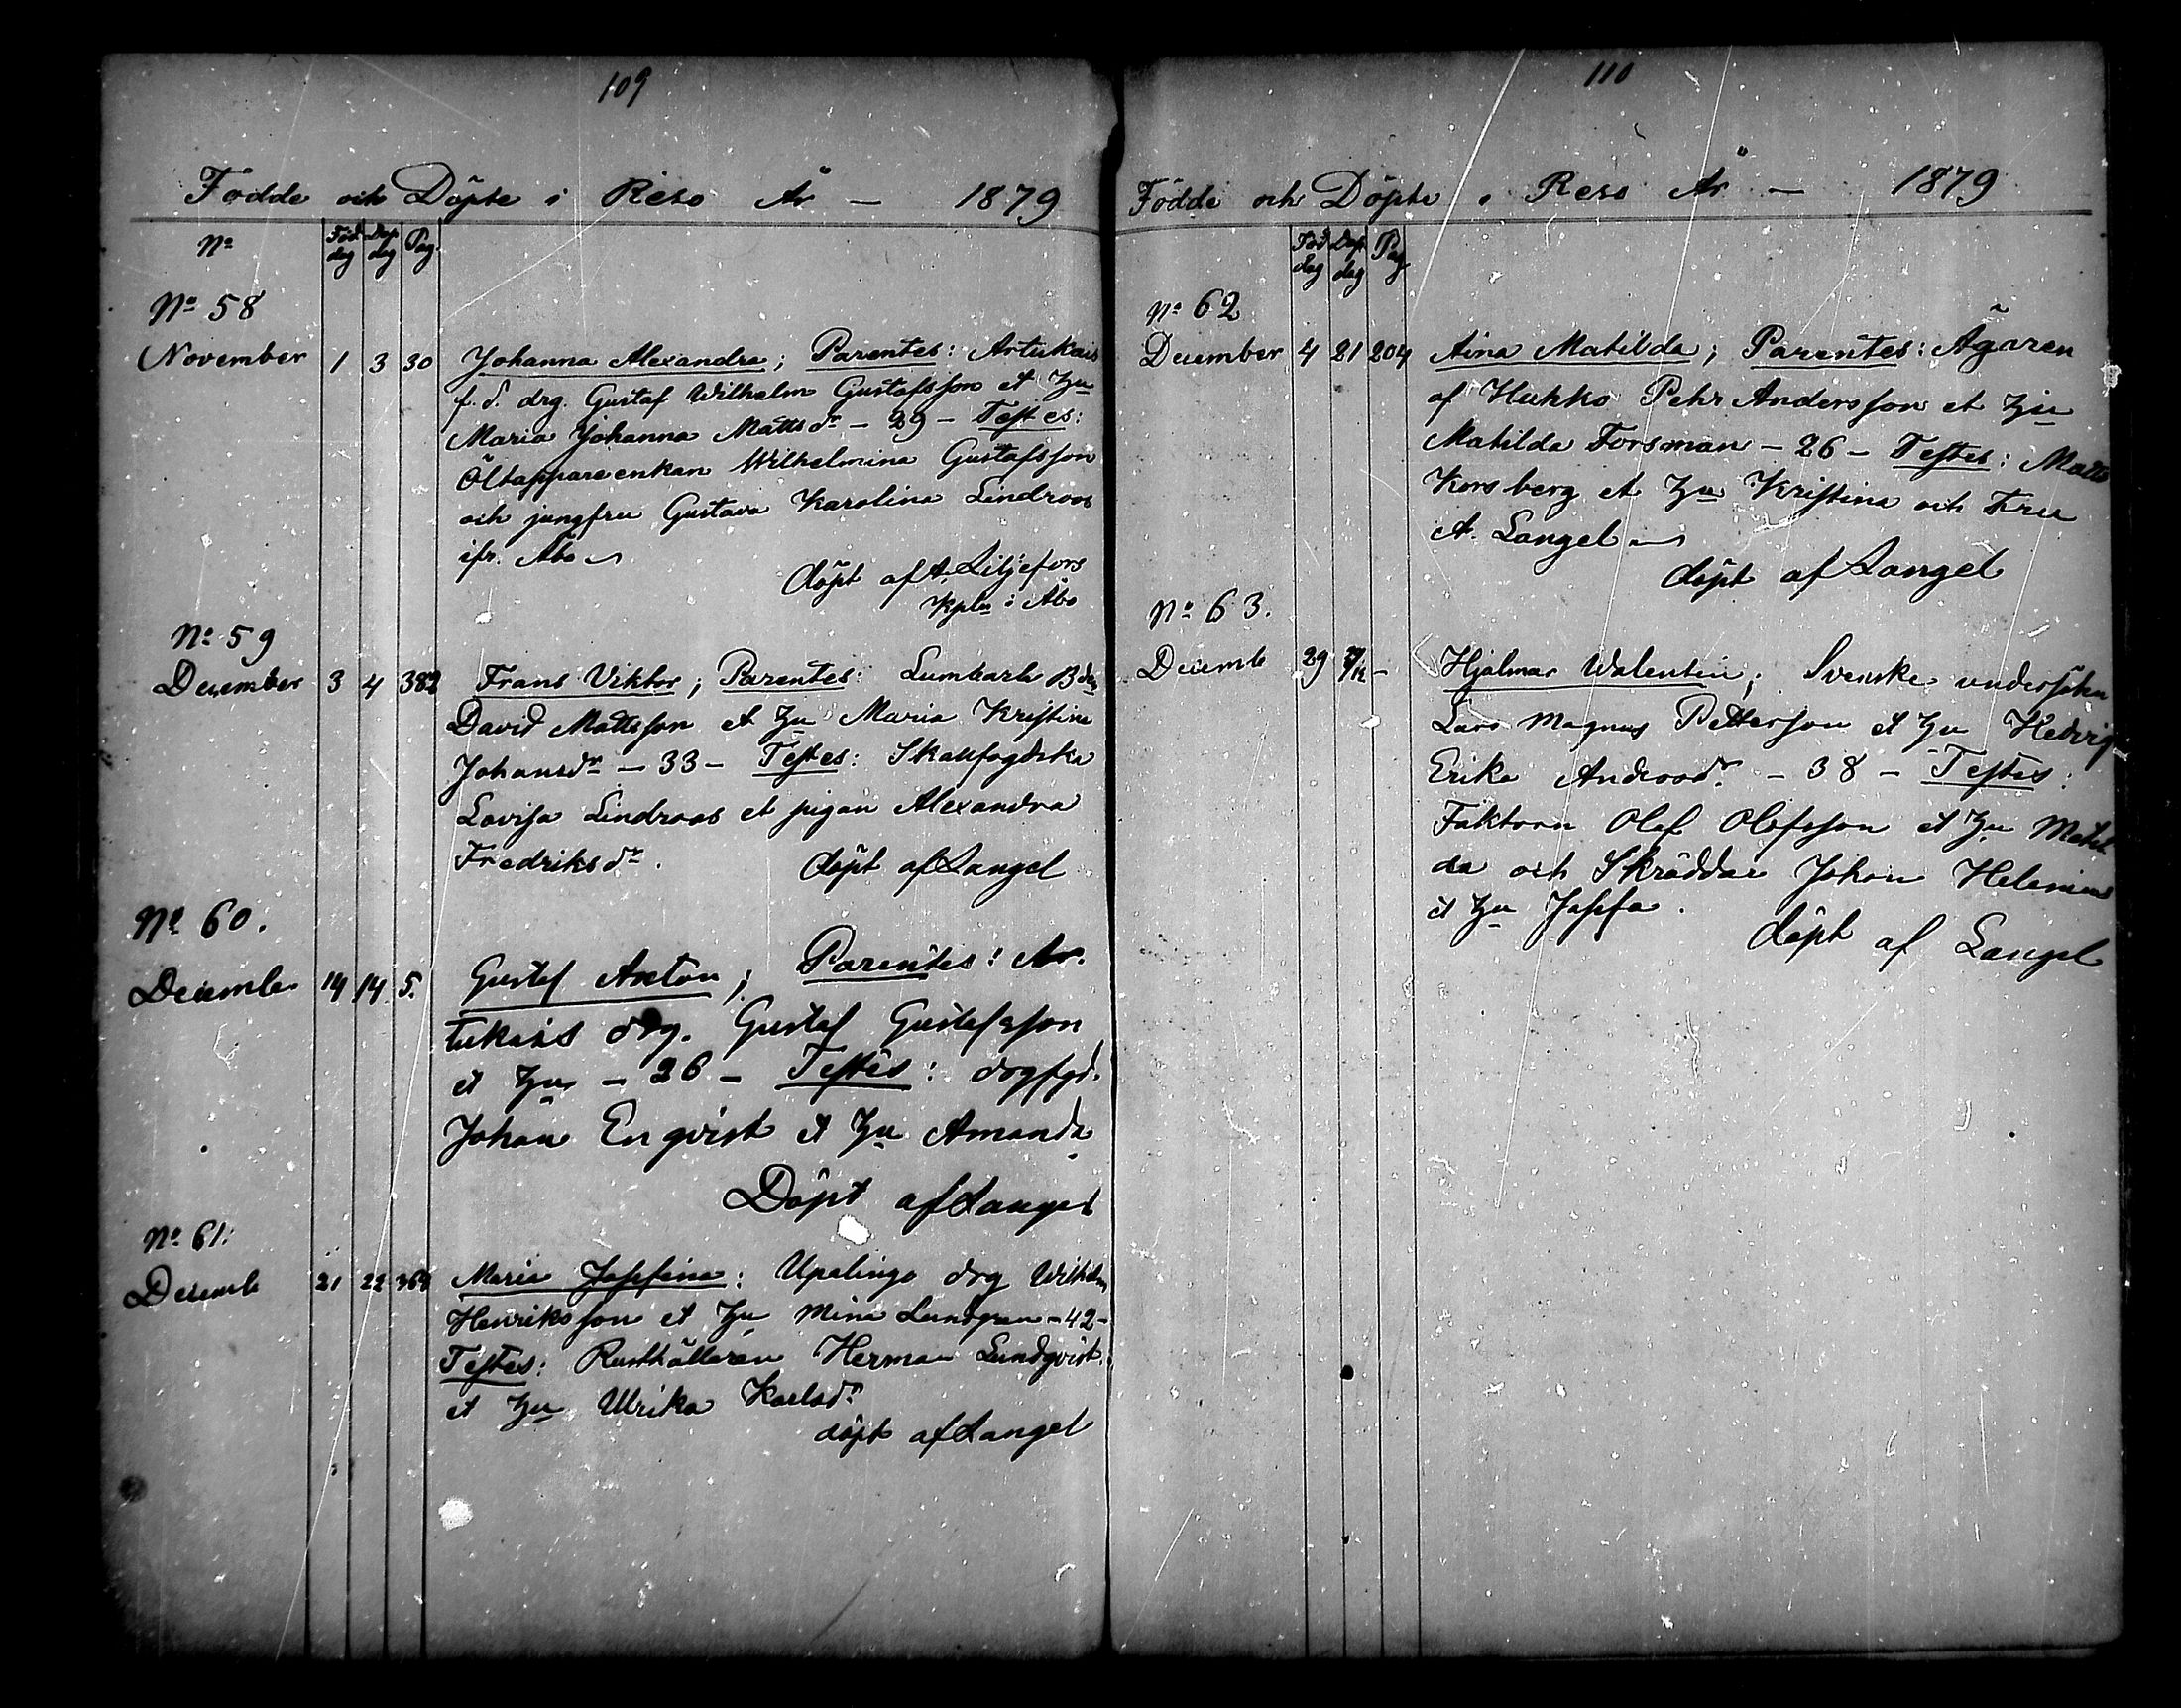 109
Födde och Döpte i Reso År — 1879
No Föd dag Dop dag Pag.
No 58
November 1 3 30 Johanna Alexandra; Parentes: Artukais
f. d. drg. Gustaf Wilhelm Gustafsson et hu
Maria Johanna Matts dr – 29 – Testes:
Öltappareenkan Wilhelmina Gustafsson
och jungfru Gustava Karolina Lindroos
ifr. Åbo
döpt af A. Liljefors
Kpln i Åbo
No 59
December 3 4 382 Frans Viktor; Parentes: Lumbarla Bden
David Mattsson et hu Maria Kristina
Johansdr – 33 – Testes: Skallfogdska
Lovisa Lindroos et pigan Alexandra
Fredriksdr.
döpt af Langel
No 60.
December 14 14 5. Gustaf Anton; Parentes: Ar-
tukais drg. Gustaf Gustafsson
et hu – 26 – Testes: drgfgd.
Johan Enqvist et hu Amanda
Döpt af Langel
No 61.
Decemb 21 22 369 Maria Josefina: Upalingo drg Wilhelm
Henriksson et hu Mina Lundgren – 42 –
Testes: Rusthållaren Herman Lundqvist
et hu Ulrika Karlsdr.
döpt af Langel
110
Födde och Döpte i Reso År — 1879
Föd dag Dop dag Pag
No 62
December 4 21 204 Aina Matilda; Parentes: Ägaren
af Hukko Pehr Andersson et hu
Matilda Forsman – 26 – Testes: Matts
Korsberg et hu Kristina och Fru
A. Langel
döpt af Langel
No 63.
Decemb 29 – Hjalmar Walentin; Svenske undersåten
Lars Magnus Petterson et hu Hedvig
Erika Andersdr. – 38 – Testes:
Faktorn Olof Olofsson et hu Matil
da och Skräddar Johan Helenius
et hu Josefa.
döpt af Langel